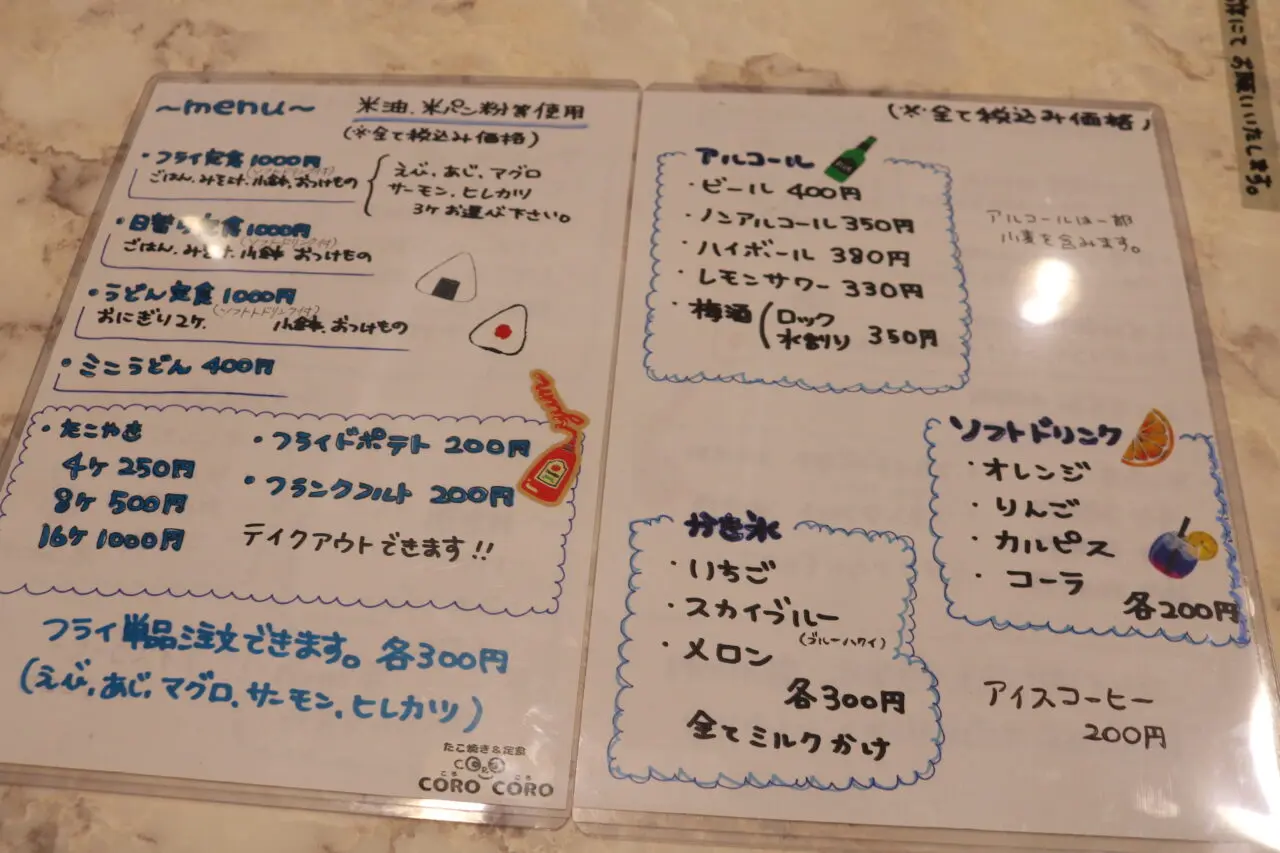 ~menu~
米油、米パン粉を使用
(※全て税込み価格)
・フライ定食 1000円
(ソフトドリンク付)
ごはん、みそ汁、小鉢、おつけもの
えび、あじ、マグロ
サーモン、ヒレカツ
3ケお選び下さい。
・日替り定食 1000円
(ソフトドリンク付)
ごはん、みそ汁、小鉢 おつけもの
・うどん定食 1000円
(ソフトドリンク付)
おにぎり2ケ、 小鉢、おつけもの
・ミニうどん 400円
・たこやき
4ケ 250円
8ケ 500円
16ケ 1000円
・フライドポテト 200円
・フランクフルト 200円
テイクアウトできます!!
フライ単品注文できます。各300円
(えび、あじ、マグロ、サーモン、ヒレカツ)
たこ焼き&定食
CORO
ころ ころ
CORO CORO
(※全て税込み価格)
アルコール
・ビール 400円
・ノンアルコール 350円
・ハイボール 380円
・レモンサワー 330円
・梅酒(ロック
水割り 350円
アルコールは一部
小麦を含みます。
ソフトドリンク
・オレンジ
・りんご
・カルピス
・コーラ
各200円
かき氷
・いちご
・スカイブルー
(ブルーハワイ)
・メロン
各300円
全てミルクかけ
アイスコーヒー
200円
にて お願いいたします。